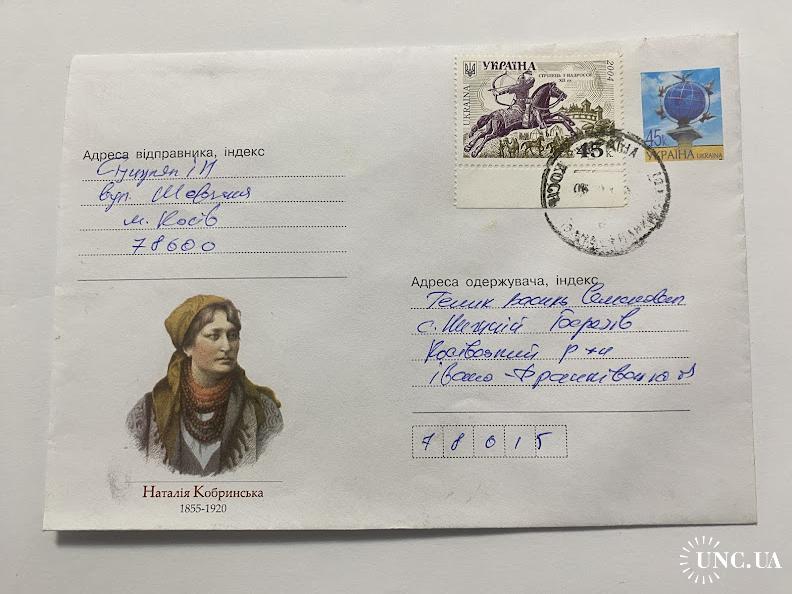 УКРАЇНА
UKRAINA
2004
СТРІЛЕЦЬ З НАДРОССЯ
XII ст.
45 К
45 К
УКРАЇНА UKRAINA
Адреса відправника, індекс
вул. Шевченка
м. Косів
78600
Адреса одержувача, індекс
Василь
с. Нижній Березів
Косівський р-н
Івано-Франківська
78615
Наталія Кобринська
1855-1920
UNC.UA